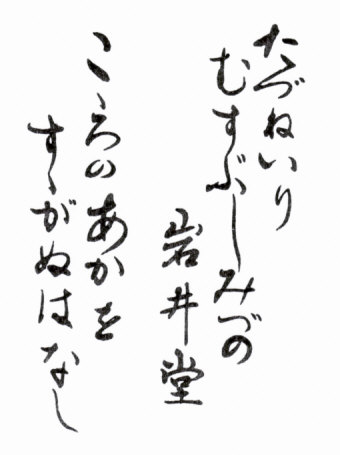 たづねいり
むすぶしみづの
岩井堂
こゝろのあかを
すゝがぬはなし